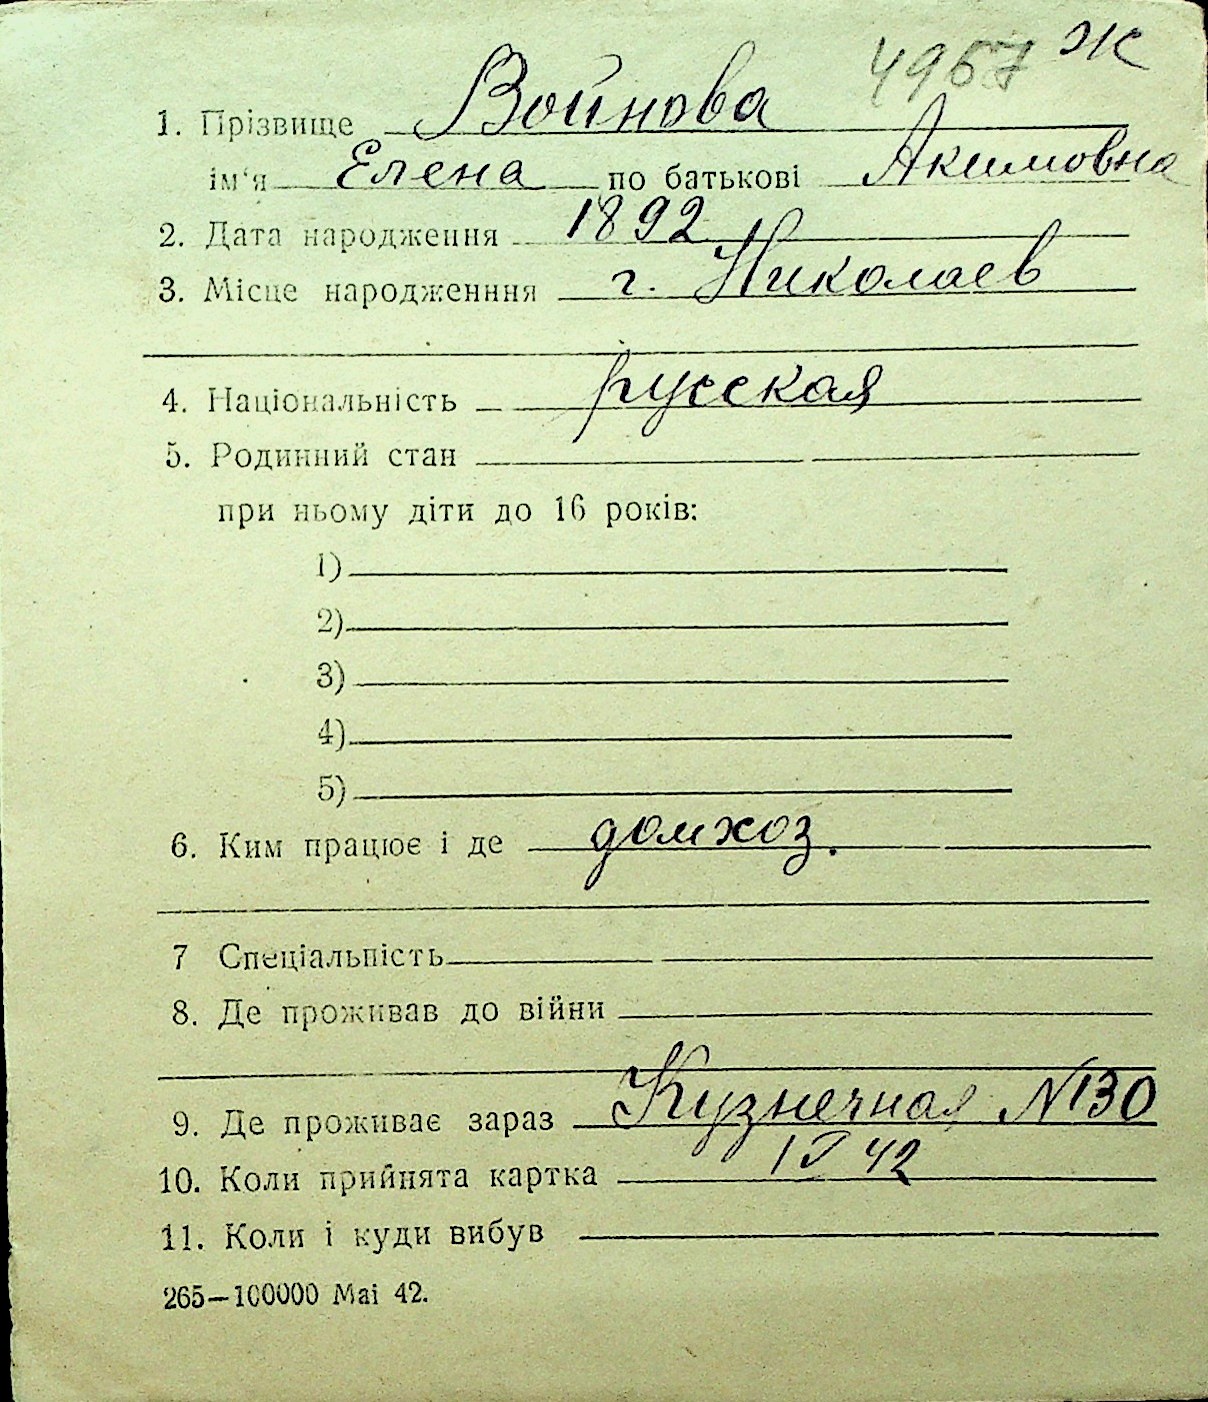 4967 Ж
1. Прізвище Войнова
ім'я Елена по батькові Акимовна
2. Дата народження 1892
3. Місце народженння г. Николаев
4. Національність русская
5. Родинний стан
при ньому діти до 16 років:
1)
2)
3)
4)
5)
6. Ким працює і де домхоз.
7 Спеціальність
8. Де проживав до війни
9. Де проживає зараз Кузнечная №130
10. Коли прийнята картка 42
11. Коли і куди вибув
265—100000 Маі 42.